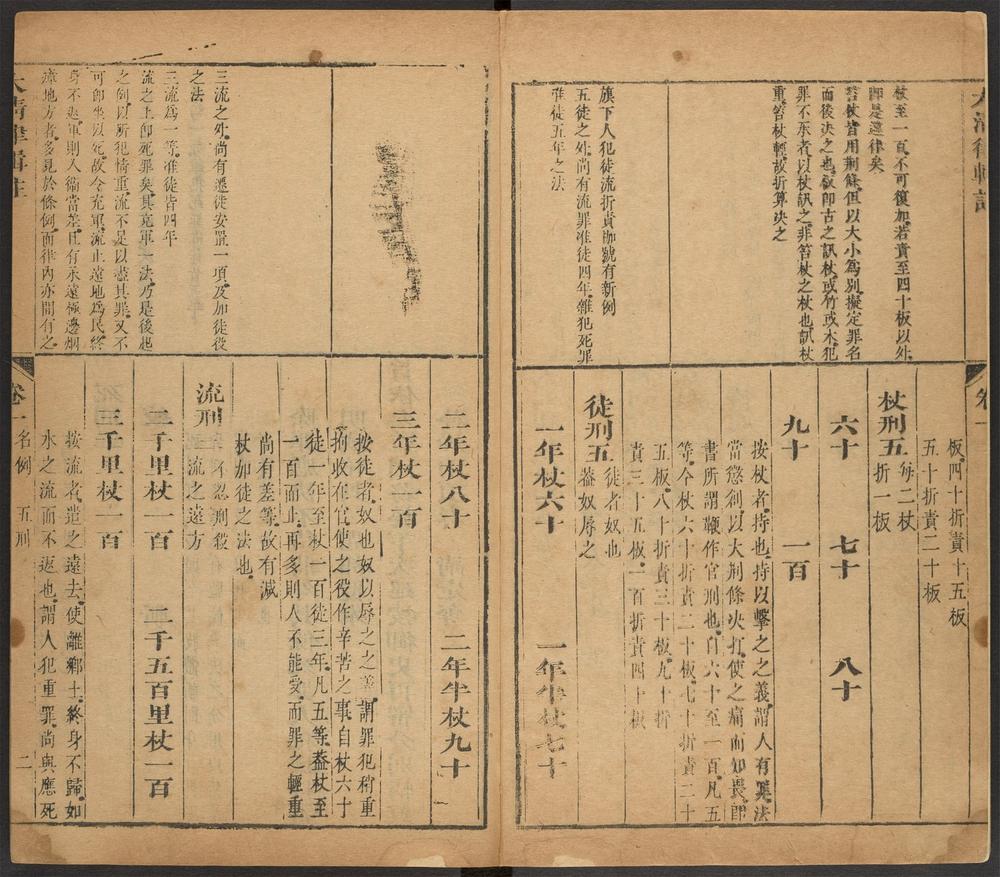 杖至一百不可復加若責至四十板以外
即是違律矣
笞杖皆用荆條但以大小爲別擬定罪名
而後決之也敂即古之訊杖或竹或木犯
罪不承者以杖訊之非笞杖之杖也訊杖
重笞杖輕故折算决之
旗下人犯徒流折責枷號有新例
五徒之外尚有流罪准徒四年雜犯死罪
准徒五年之法
卷一
板四十折責十五板
五十折責二十板
杖刑五每二杖
折一板
六十 七十 八十
九十 一百
按杖者持也持以擊之之義謂人有罪法
當懲創以大荆條决打使之痛而知畏即
書所謂鞭作官刑也自六十至一百凡五
等今杖六十折責二十板七十折責二十
五板八十折責三十板九十折
責三十五板一百折責四十板
徒刑五徒者奴也
蓋奴辱之
一年杖六十 一年半杖七十
三流之外尚有遷徙安置一項及加徒役
之法
三流爲一等准徒皆四年
流之上即死罪矣其充軍一法乃是後起
之例以所犯情重流不足以盡其罪又不
可即坐以死故令充軍流止遠地爲民終
身不返軍則人衞當差且有永遠極邊烟
瘴地方者多見於條例而律內亦間有之
大清律輯註
二年杖八十 二年半杖九十
三年杖一百
按徒者奴也奴以辱之之義謂罪犯稍重
拘收在官使之役作辛苦之事自杖六十
徒一年至杖一百徒三年凡五等蓋杖至
一百而止再多則人不能受而罪之輕重
尚有差等故有減
杖加徒之法也
流刑三不忍刑殺
流之遠方
二千里杖一百 二千五百里杖一百
三千里杖一百
按流者遣之遠去使離鄉土終身不歸如
水之流而不返也謂人犯重罪尚與應死
卷一 名例 五刑 二